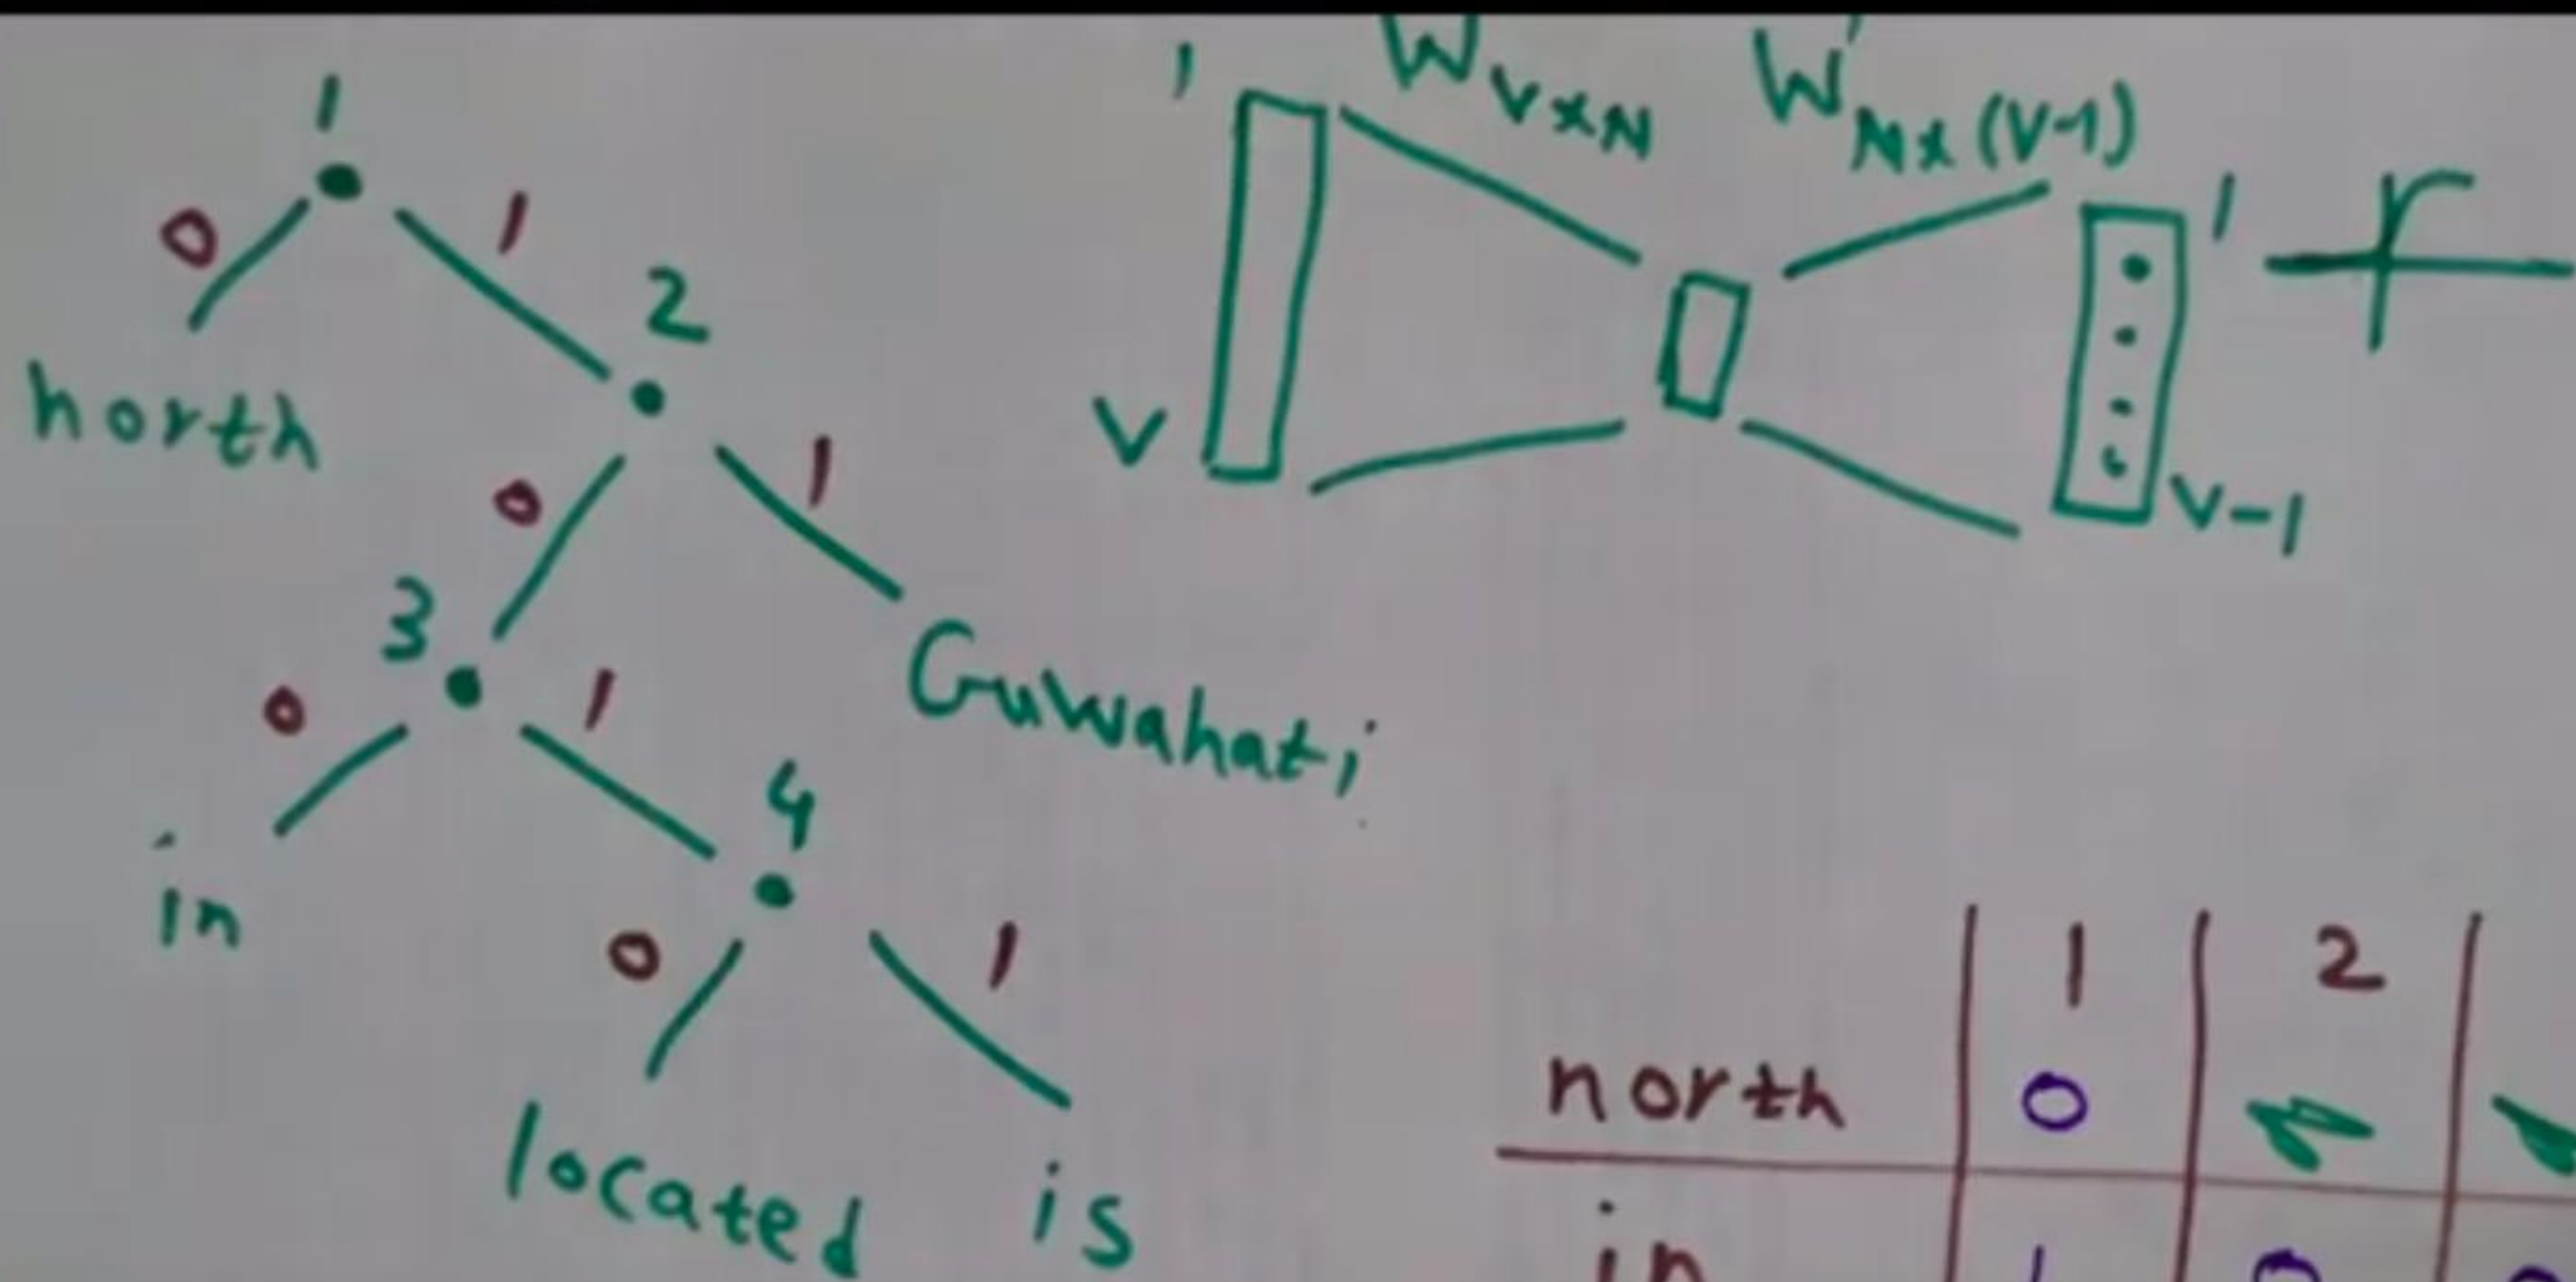 1
0 1
north
2
0 1
Guwahati
3
0 1
in
4
0 1
located is
1 W V×N W' N×(V-1) 1
V V-1
1 2
north 0
in 1 0